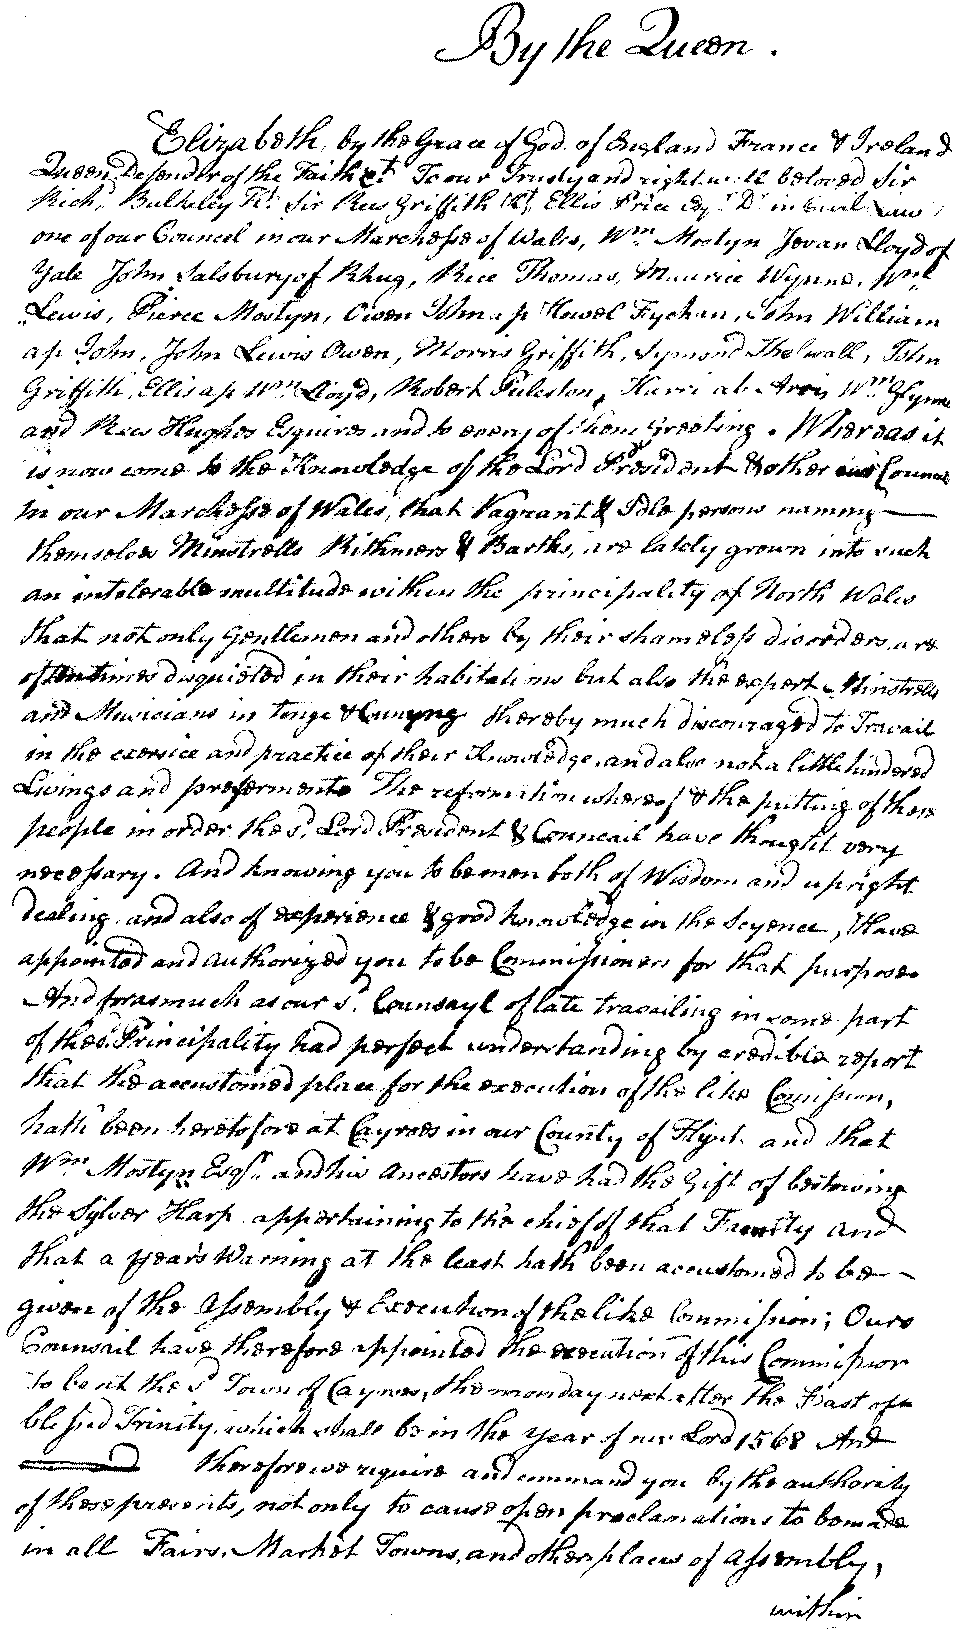 By the Queen.
Elizabeth, by the Grace of God of England France & Ireland
Queen Defender of the Faith &ct. To our Trusty and right well beloved Sir
Richd. Bulkeley Kt. Sir Rees Griffith Kt. Ellis Price Esqr. Dr. in Civil Law
one of our Council in our Marchesse of Wales, Wm. Mostyn Jevan Lloyd of
Yale John Salsbury of Rhug, Rice Thomas, Maurice Wynne, Wm.
Lewis, Pierce Mostyn, Owen John ap Howel Fychan, John William
ap John, John Lewis Owen, Morris Griffith, Symond Thelwall, John
Griffith, Ellis ap Wm. Lloyd, Robert Puleston, Harri ab Wm. Glynne
and Rees Hughes Esquires and to every of them Greeting. Whereas it
is now come to the Knowledge of the Lord President & other our Council
in our Marchesse of Wales, that Vagrant & Idle persons naming
themselves Minstrells Rithmers & Barths, are lately grown into such
an intolerable multitude within the principality of North Wales
that not only Gentlemen and others by their shameless disorders are
oftentimes disquieted in their habitations but also the expert Minstrells
and Musicians in tonge & Cunyng thereby much discouraged to Travail
in the exercise and practice of their Knowledge, and also not a little hindered
Livings and preferments The reformation whereof & the putting of these
people in order the sd. Lord President & Councail have thought very
necessary. And knowing you to be men both of Wisdom and upright
dealing and also of experience & good knowledge in the Scyence, Have
appointed and authorized you to be Commissioners for that purpose
And forasmuch as our sd. Counsayl of late travailing in some part
of the sd. Principality had perfect understanding by credible report
that the accustomed place for the execution of the like Comission,
hath been heretofore at Cayroes in our County of Flynt and that
Wm. Mostyn Esqr. and his Ancestors have had the Gift of bestowing
the Sylver Harp appertaining to the chief of that Faculty and
that a year's Warning at the least hath been accustomed to be
given of the Assembly & Execution of the like Commission; Oure
Counsail have therefore appointed the execution of this Commission
to be at the sd. Town of Cayroes, the monday next after the Feast of
blessed Trinity, which shall be in the year of our Lord 1568 And
therefore we require and command you by the authority
of these presents, not only to cause open proclamations to be made
in all Fairs, Market Towns, and other places of Assembly,
within